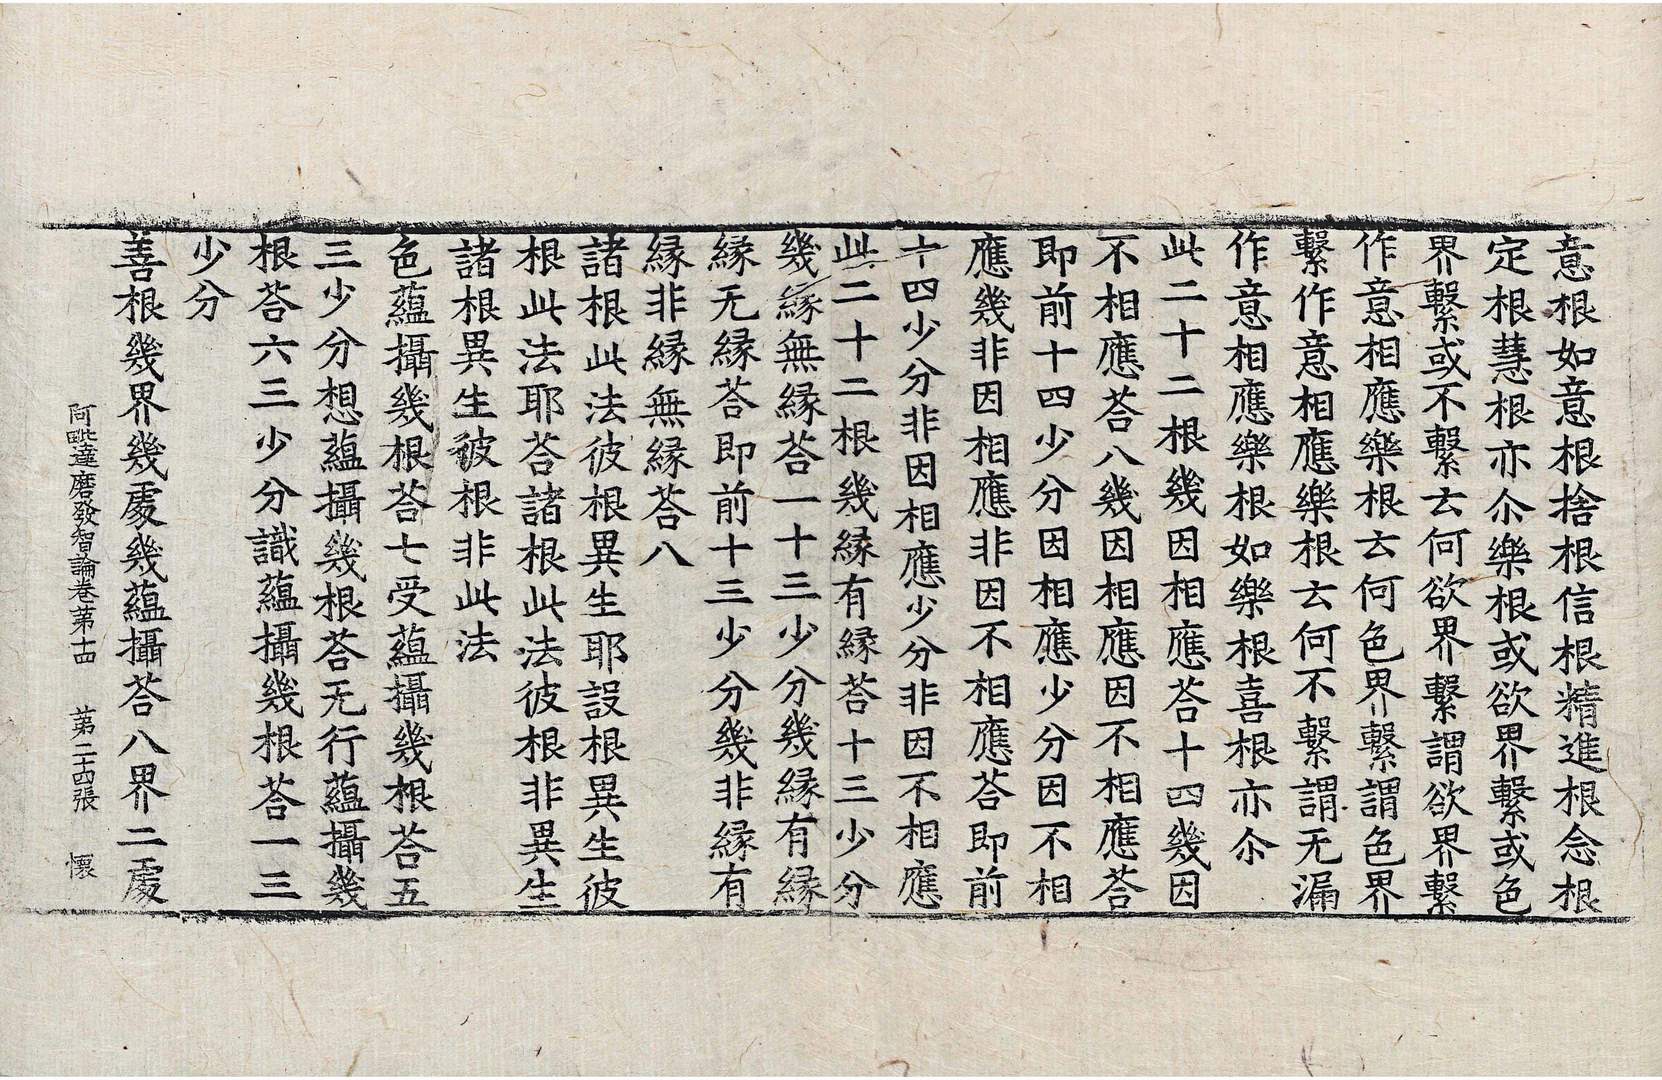 意根如意根捨根信根精進根念根
定根慧根亦尒樂根或欲界繫或色
界繫或不繫云何欲界繫謂欲界繫
作意相應樂根云何色界繫謂色界
繫作意相應樂根云何不繫謂无漏
作意相應樂根如樂根喜根亦尒
此二十二根幾因相應荅十四幾因
不相應荅八幾因相應因不相應荅
即前十四少分因相應少分因不相
應幾非因相應非因不相應荅即前
十四少分非因相應少分非因不相應
此二十二根幾縁有縁荅十三少分
幾縁無縁荅一十三少分幾縁有縁
縁无縁荅即前十三少分幾非縁有
縁非縁無縁荅八
諸根此法彼根異生耶設根異生彼
根此法耶荅諸根此法彼根非異生
諸根異生彼根非此法
色蘊攝幾根荅七受蘊攝幾根荅五
三少分想蘊攝幾根荅无行蘊攝幾
根荅六三少分識蘊攝幾根荅一三
少分
善根幾界幾處幾蘊攝荅八界二處
阿毗達磨發智論卷第十四 第二十四張 懷